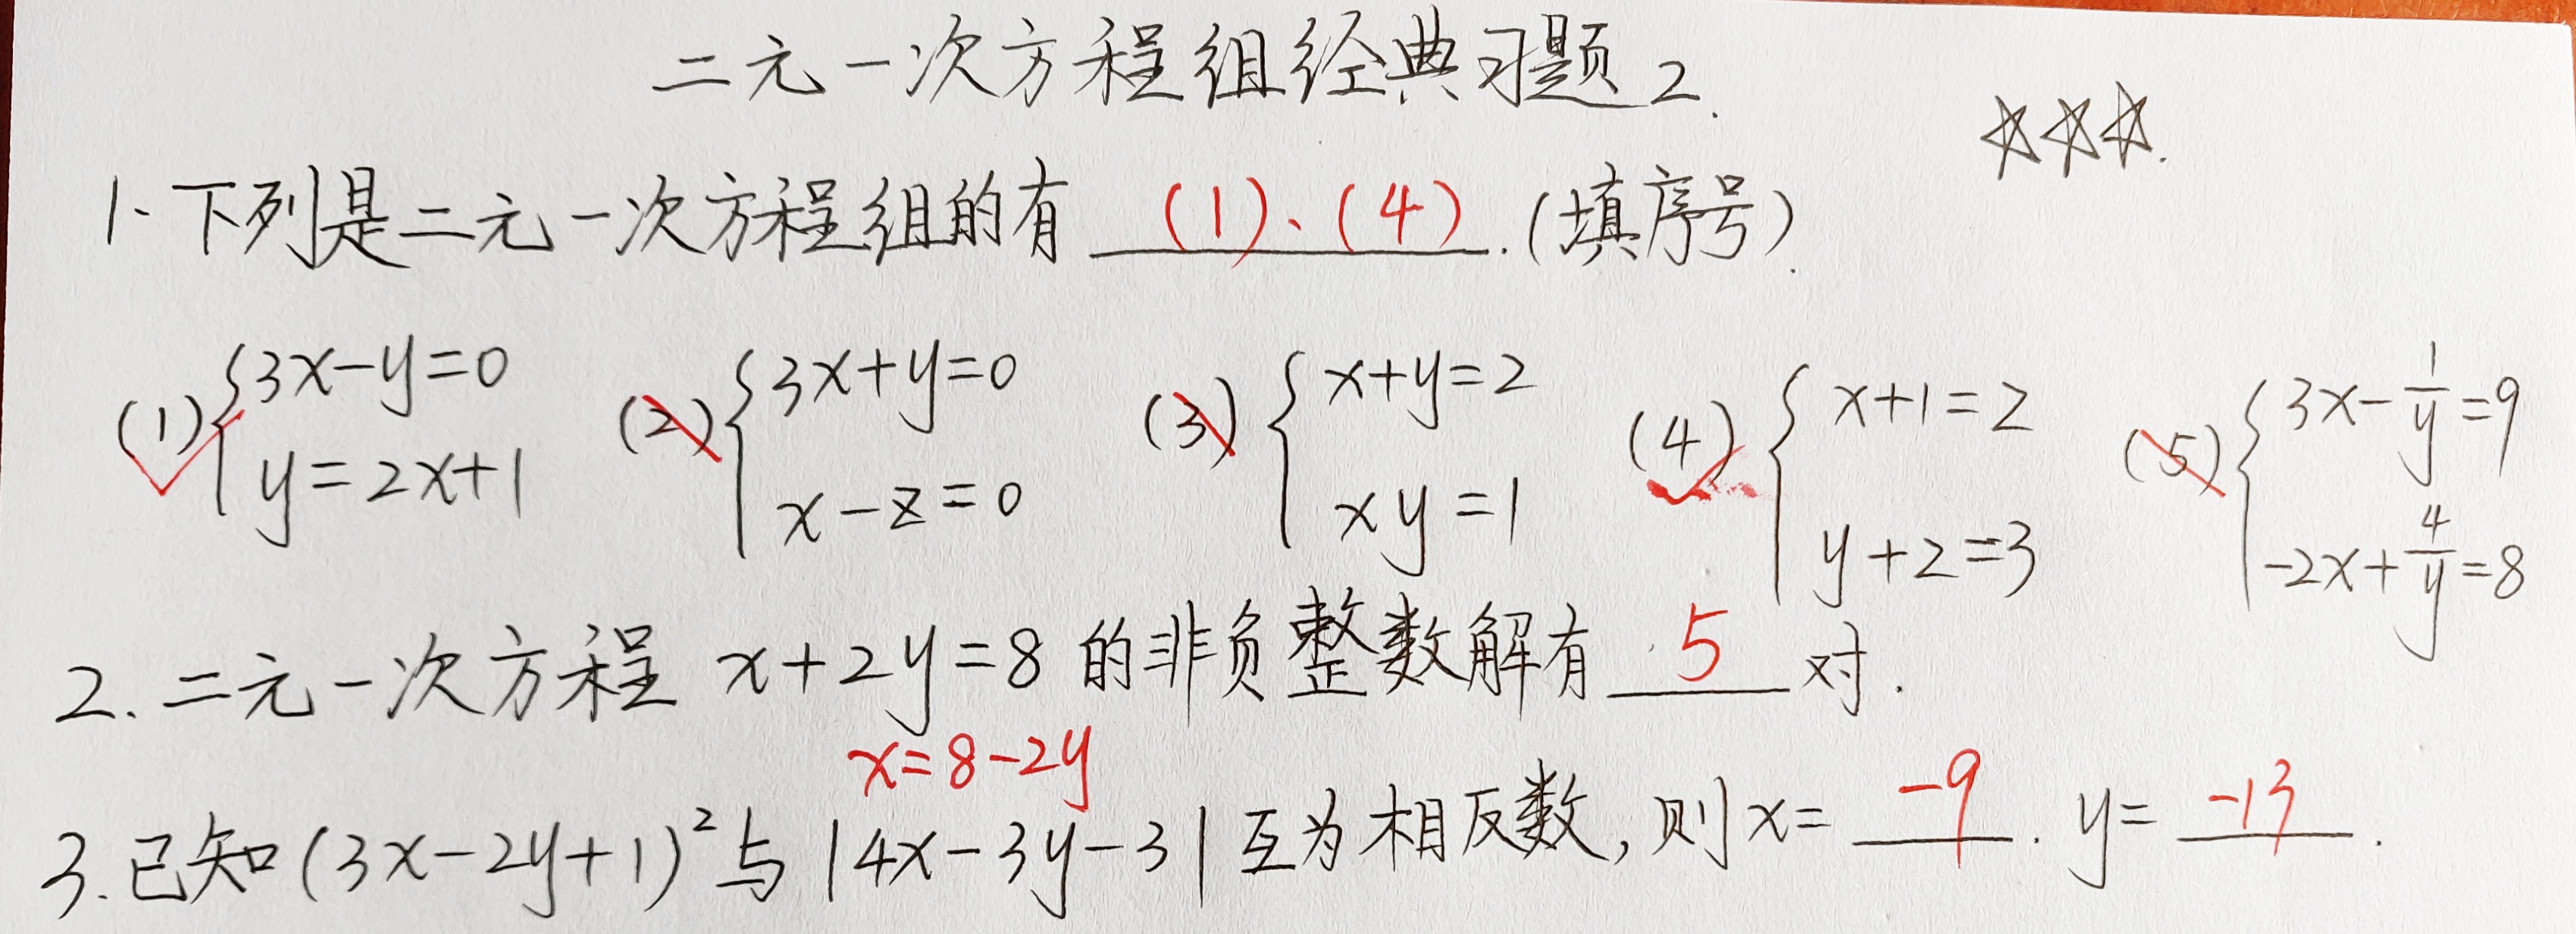 二元一次方程组经典习题2.
☆☆☆.
1.下列是二元一次方程组的有 (1)、(4) .(填序号).
(1) {3x-y=0 (2) {3x+y=0 (3) {x+y=2 (4) {x+1=2 (5) {3x-1/y=9
y=2x+1 x-z=0 xy=1 y+2=3 -2x+4/y=8
2.二元一次方程 x+2y=8 的非负整数解有 5 对.
x=8-2y
3.已知(3x-2y+1)²与|4x-3y-3|互为相反数,则x= -9 . y= -13 .